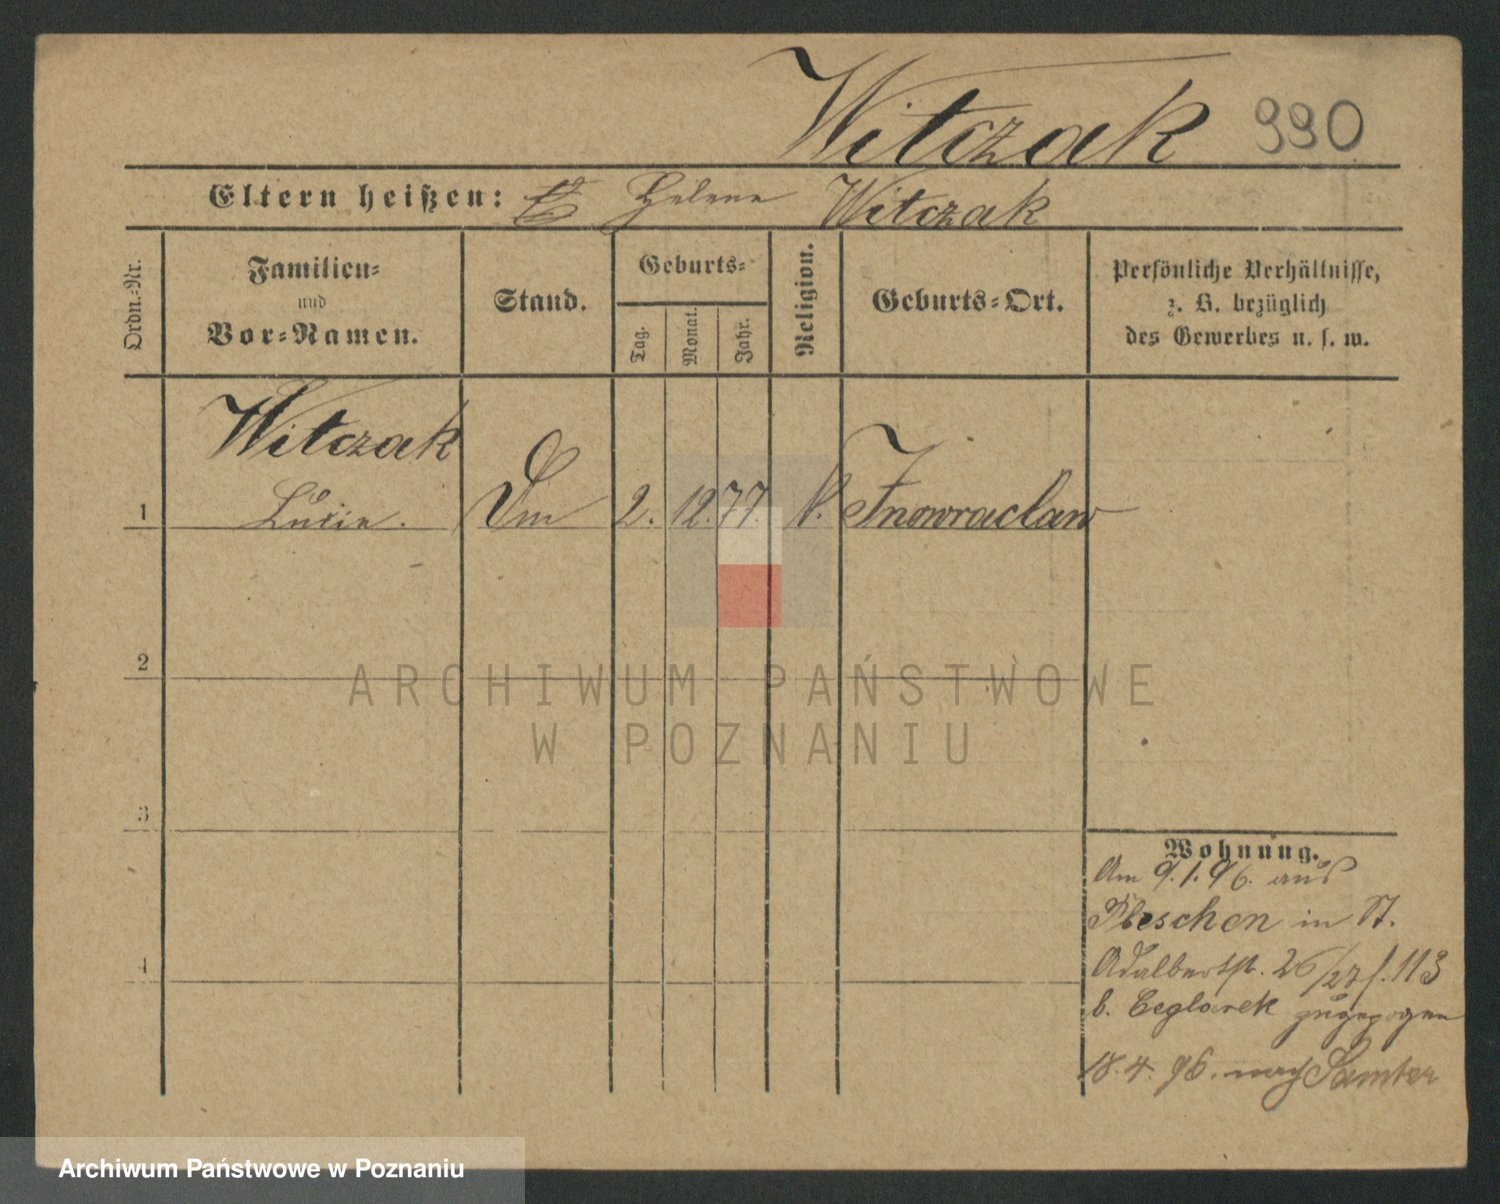 Witczak 990
Eltern heißen: Helene Witczak
Ordn.=Nr.
Familien=
und
Vor=Namen.
Stand.
Geburts=
Tag.
Monat.
Jahr.
Religion.
Geburts=Ort.
Persönliche Verhältnisse,
z. B. bezüglich
des Gewerbes u. s. w.
Witczak
1 Lucie. 2. 12. 77. Inowraclaw
2
3
4
ARCHIWUM PAŃSTWOWE
W POZNANIU
Wohnung.
Am 9.1.96. aus
Pleschen in St.
Adalbertst. 26/27 113
b. Ceglarek zugezogen
18. 4. 96. nach Samter
Archiwum Państwowe w Poznaniu